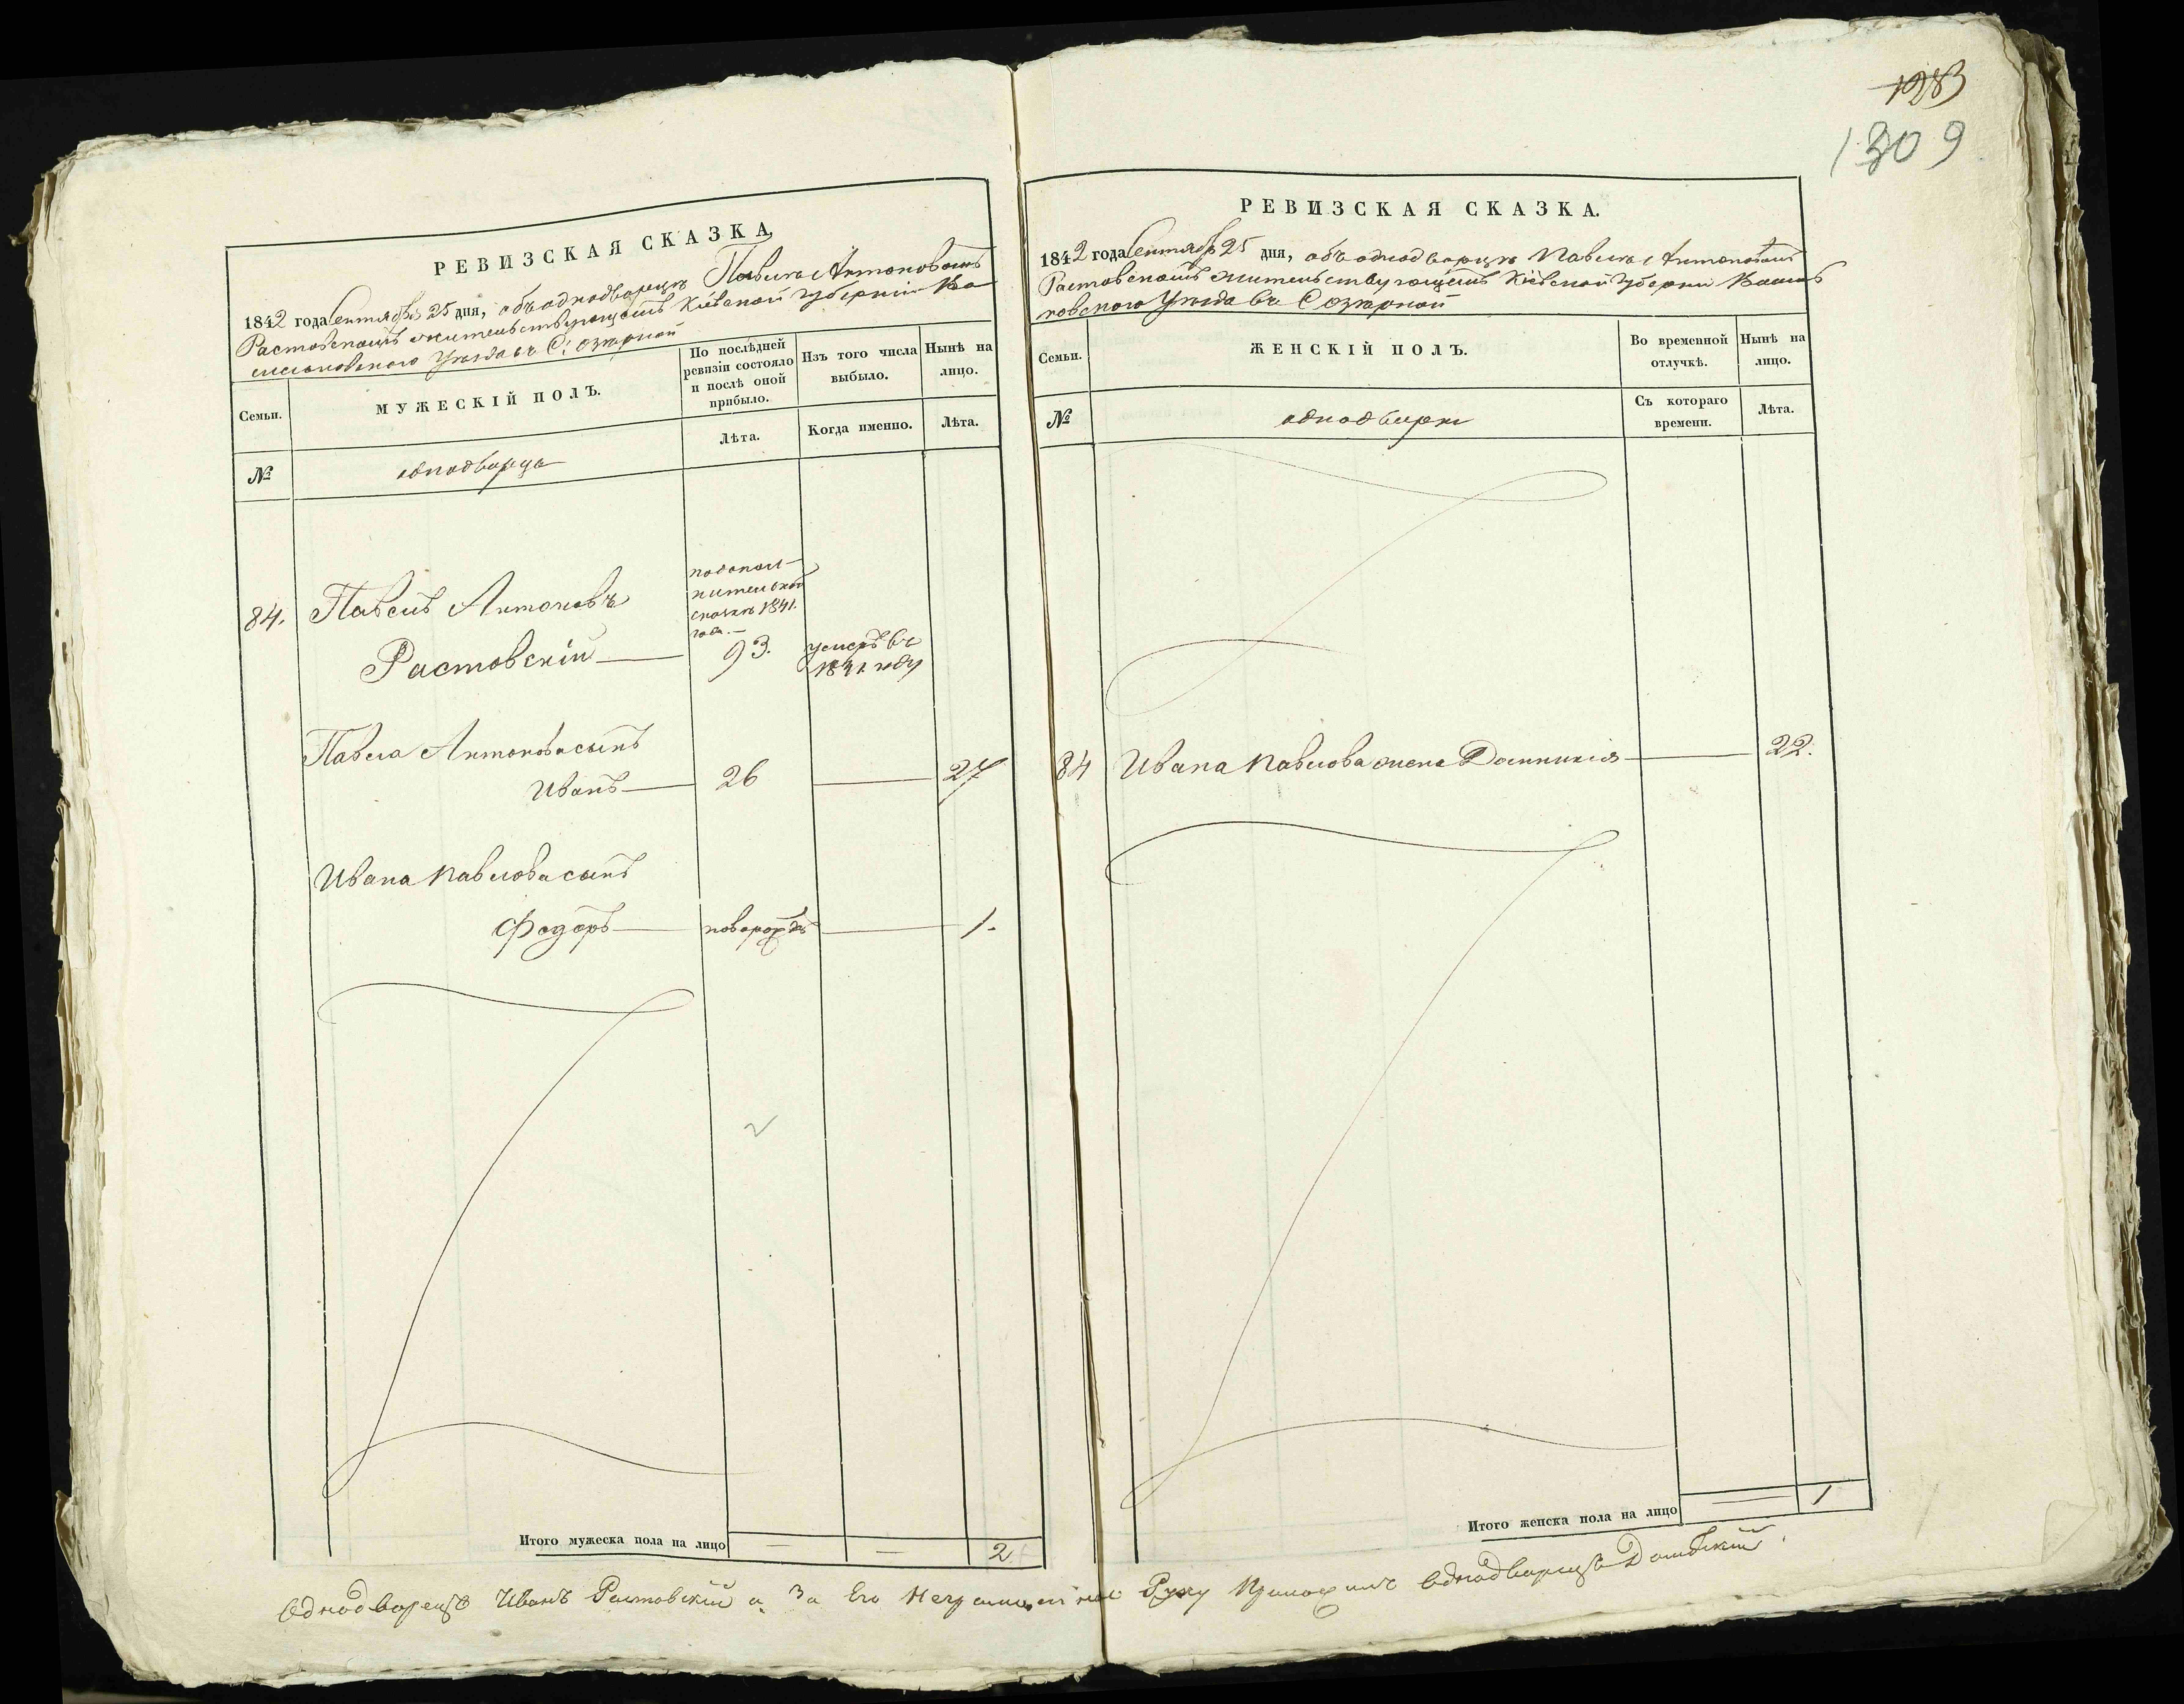 1283
1309
РЕВИЗСКАЯ СКАЗКА
1842 года Сентября 25 дня, объ однодворцѣ Павлѣ Антоновомъ
Растовскомъ жительствующемъ Кіевской губерніи Ва
сильковского Уѣзда въ С: Озѣрной
Семьи.
МУЖЕСКІЙ ПОЛЪ.
По послѣдней
ревизіи состояло
и послѣ оной
прибыло.
Изъ того числа
выбыло.
Нынѣ на
лицо.
Лѣта.
Когда именно.
Лѣта.
№
однодворца
84.
Павелъ Антоновъ
Растовскій
по дополн-
нительной
сказкѣ 1841.
года.
93.
умеръ въ
1841 году
Павла Антонова сынъ
Иванъ
26
27
Ивана Павлова сынъ
Федоръ
новорожд
1.
Итого мужеска пола на лицо
2
РЕВИЗСКАЯ СКАЗКА.
1842 года Сентября 25 дня, объ однодворцѣ Павлѣ Антоновомъ
Растовскомъ жительствующемъ Кіевской губерніи Василь
ковского Уѣзда въ С Озѣрной
Семьи.
ЖЕНСКІЙ ПОЛЪ.
Во временной
отлучкѣ.
Нынѣ на
лицо.
№
однодворки
Съ котораго
времени.
Лѣта.
84
Ивана Павлова жена Домникія
22.
Итого женска пола на лицо
1
Однодворецъ Иванъ Растовскій а за Его Неграмотного Руку Приложилъ Однодворецъ